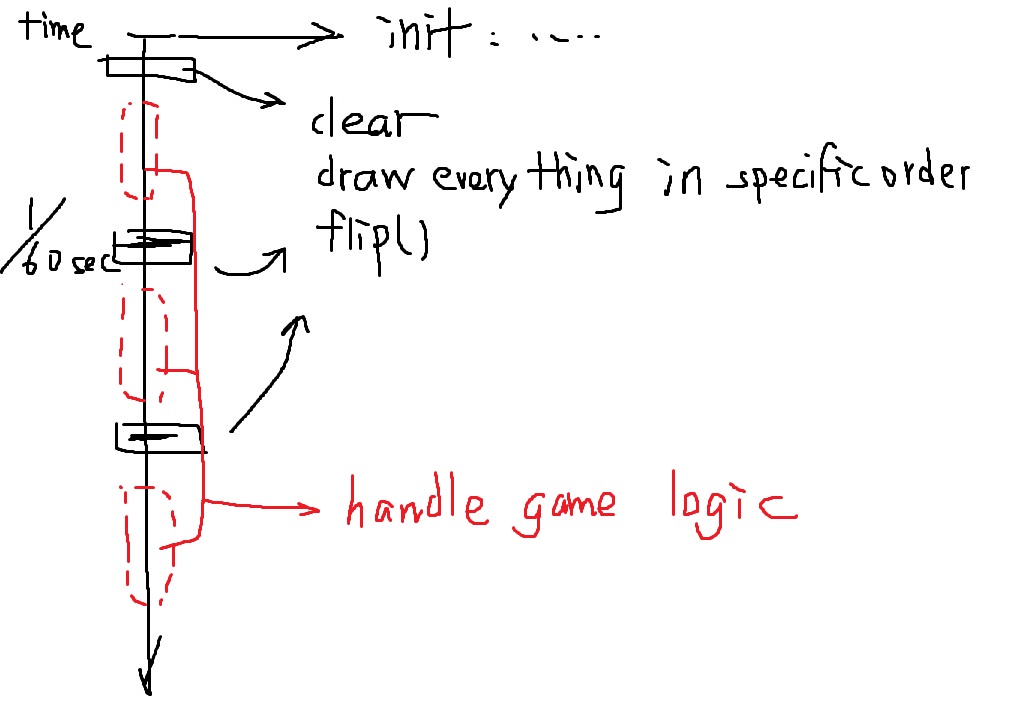 time
init : .....
clear
draw everything in specific order
flip()
1/60 sec
handle game logic